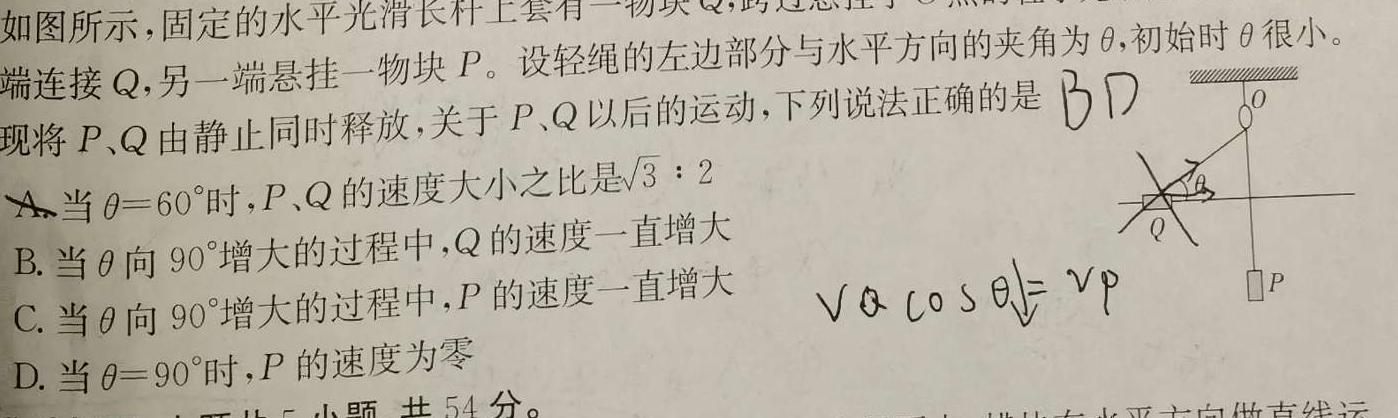 如图所示,固定的水平光滑长杆上套有一物块Q,跨过悬挂于O
端连接Q,另一端悬挂一物块P。设轻绳的左边部分与水平方向的夹角为θ,初始时θ很小。
现将P、Q由静止同时释放,关于P、Q以后的运动,下列说法正确的是 BD
A. 当θ=60°时,P、Q的速度大小之比是√3:2
B. 当θ向90°增大的过程中,Q的速度一直增大
C. 当θ向90°增大的过程中,P的速度一直增大
D. 当θ=90°时,P的速度为零
O
θ
Q
P
vQ cosθ↓=vP
5小题,共54分。